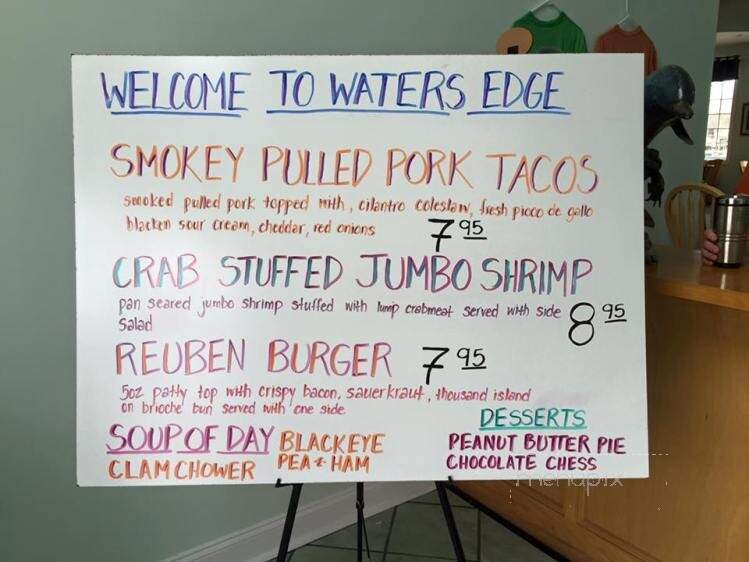 WELCOME TO WATERS EDGE
SMOKEY PULLED PORK TACOS
smoked pulled pork topped with, cilantro coleslaw, fresh picco de gallo
blacken sour cream, cheddar, red onions 7 95
CRAB STUFFED JUMBO SHRIMP
pan seared jumbo shrimp stuffed with lump crabmeat served with side
salad 8 95
REUBEN BURGER 7 95
5oz patty top with crispy bacon, sauerkraut, thousand island
on brioche bun served with one side
SOUP OF DAY
CLAM CHOWER
BLACKEYE
PEA & HAM
DESSERTS
PEANUT BUTTER PIE
CHOCOLATE CHESS
menupix